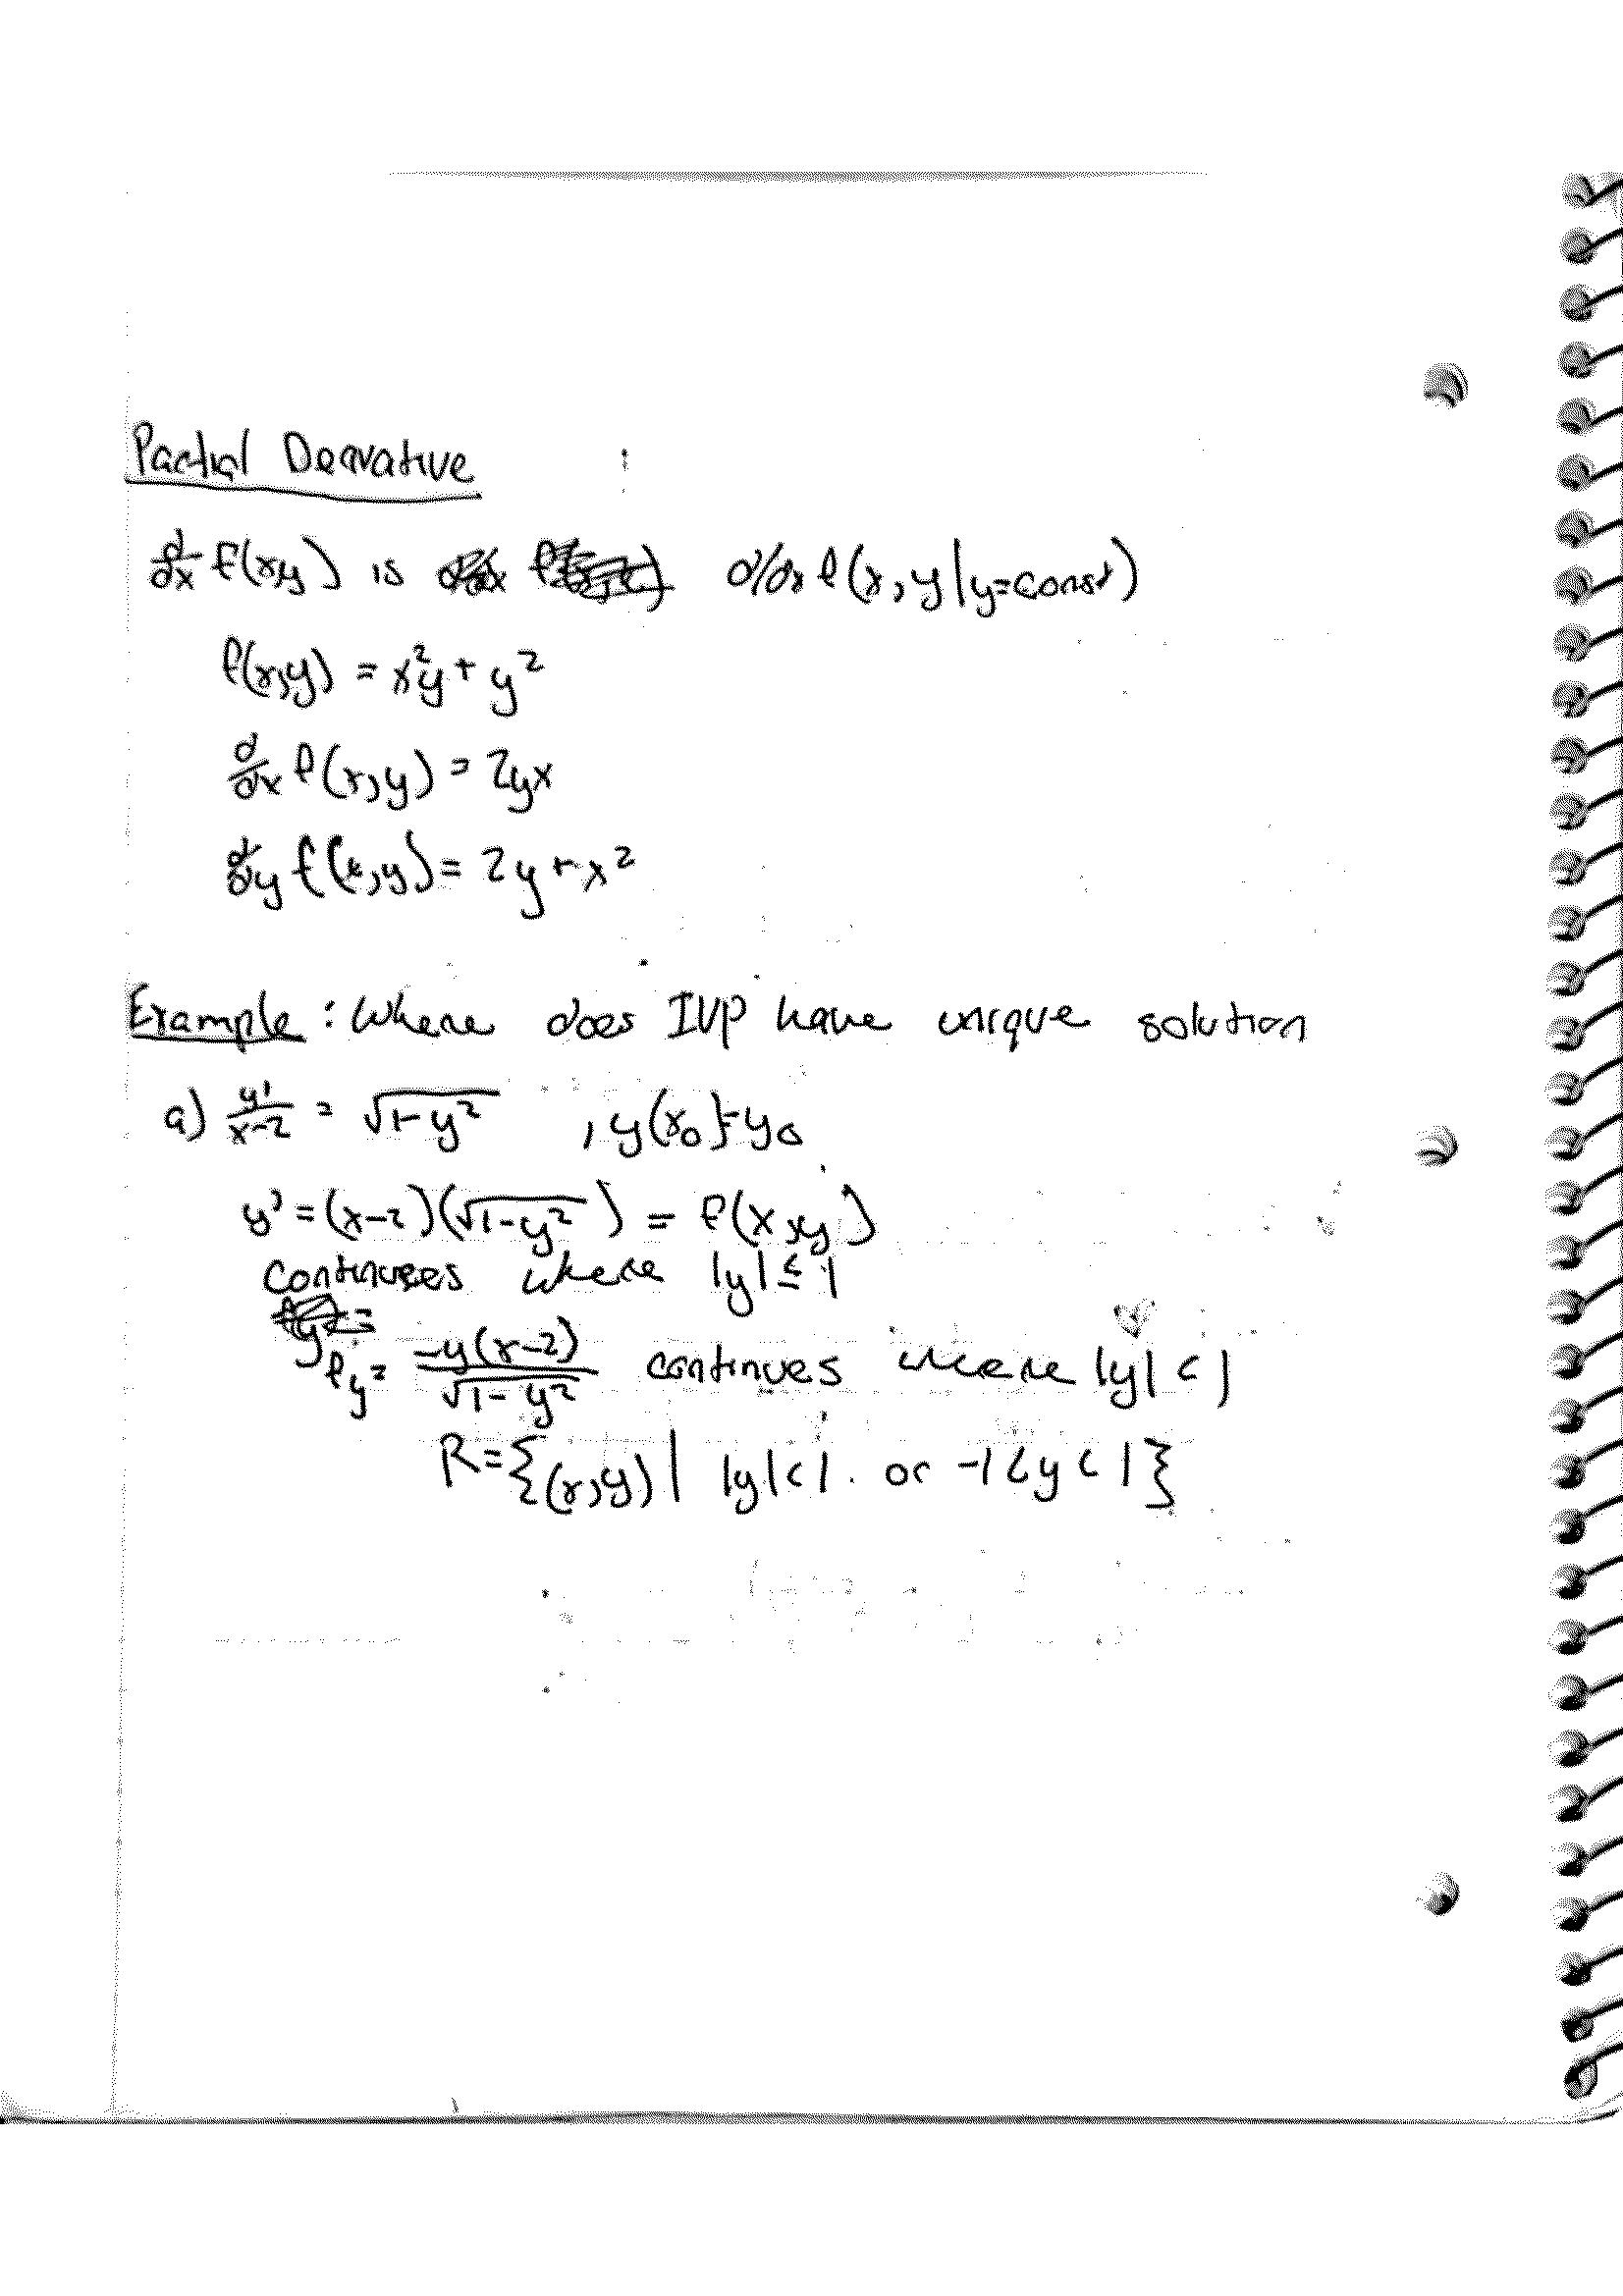 Partial Derivative
d/dx f(x,y) is d/dx f(x, y|y=const)
f(x,y) = x²y + y²
d/dx f(x,y) = 2yx
d/dy f(x,y) = 2y + x²
Example : Where does IVP have unique solution
a) y'/(x-2) = √(1-y²) , y(x₀)=y₀
y' = (x-2)(√(1-y²)) = f(x,y)
continues where |y| ≤ 1
f_y = -y(x-2)/√(1-y²) continues where |y| < 1
R = {(x,y) | |y|<1 . or -1<y<1}